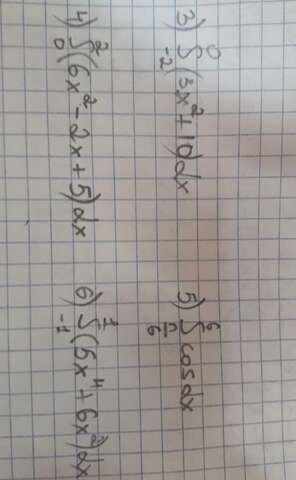 3) ∫₋₂⁰ (3x²+10)dx 5) ∫_{π/6}^{6} cosdx
4) ∫₀² (6x²-2x+5)dx 6) ∫₋₁¹ (5x⁴+6x²)dx